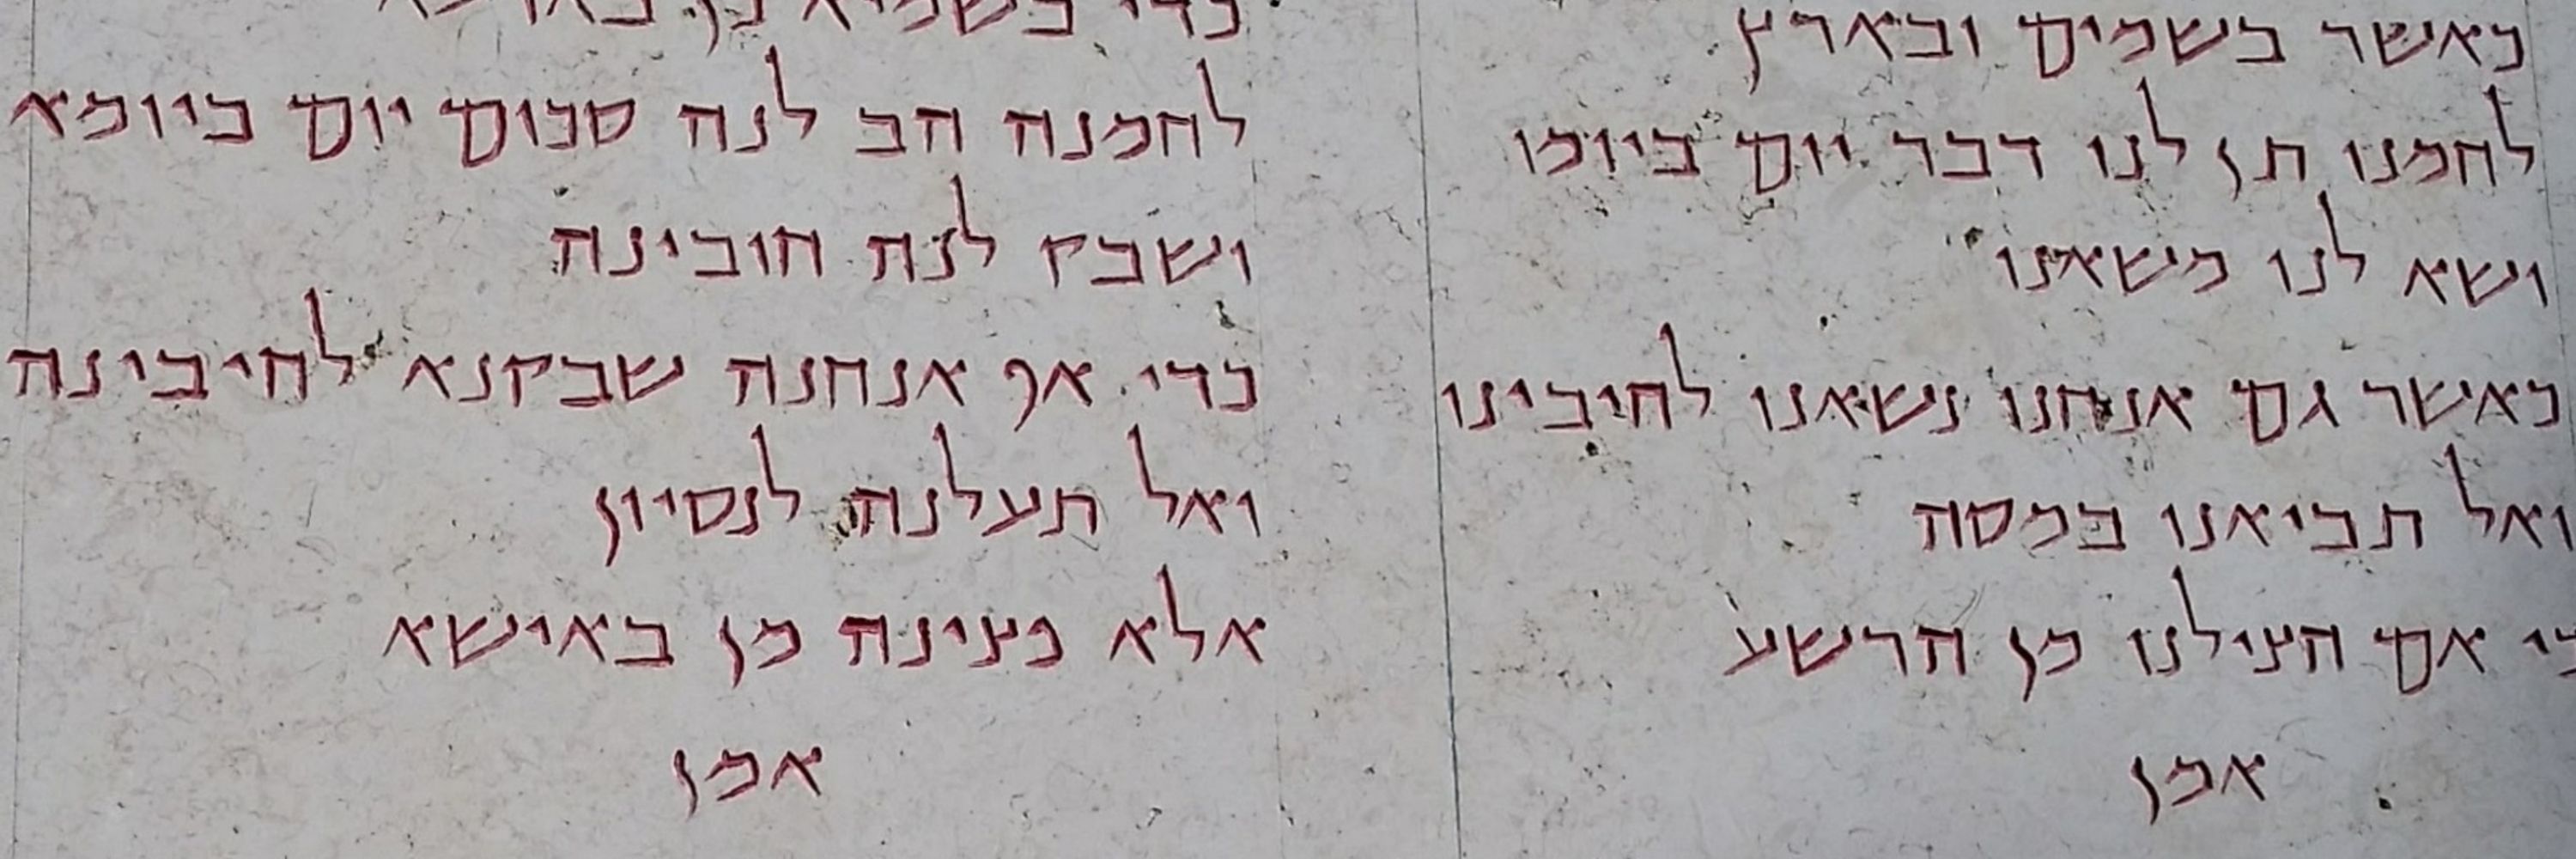 כאשר בשמים ובארץ
לחמנו תן לנו דבר יום ביומו
ושא לנו משאנו
כאשר גם אנחנו נשאנו לחיבינו
ואל תביאנו במסה
כי אם הצילנו מן הרשע
אמן
כדי בשמיא כן
לחמנה הב לנה סכום יום ביומא
ושבק לנה חובינה
כדי אף אנחנה שבקנא לחיבינה
ואל תעלנה לנסיון
אלא פצינה מן באישא
אמן